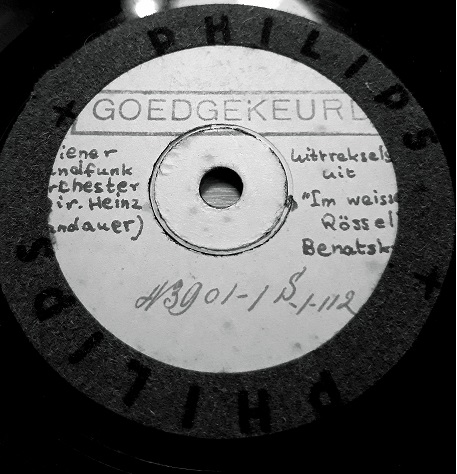 PHILIPS + PHILIPS + PHILIPS
GOEDGEKEURD
iener
ndfunk
rchester
ir. Heinz
andauer)
Uittreksels
uit
"Im weisse
Rössel
Benatsk
N3901-1 S-1-112